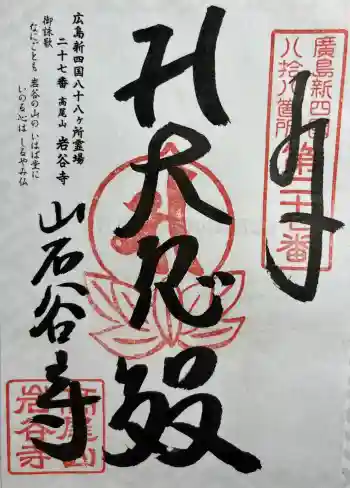 廣島新四国
八拾八箇所
第二十七番
奉拝
大悲殿
岩谷寺
広島新四国八十八ヶ所霊場
二十七番 高尾山 岩谷寺
御詠歌
なにごとも 岩谷の山の いはば堂に
いのる心は しるやみ仏
高尾山
岩谷寺